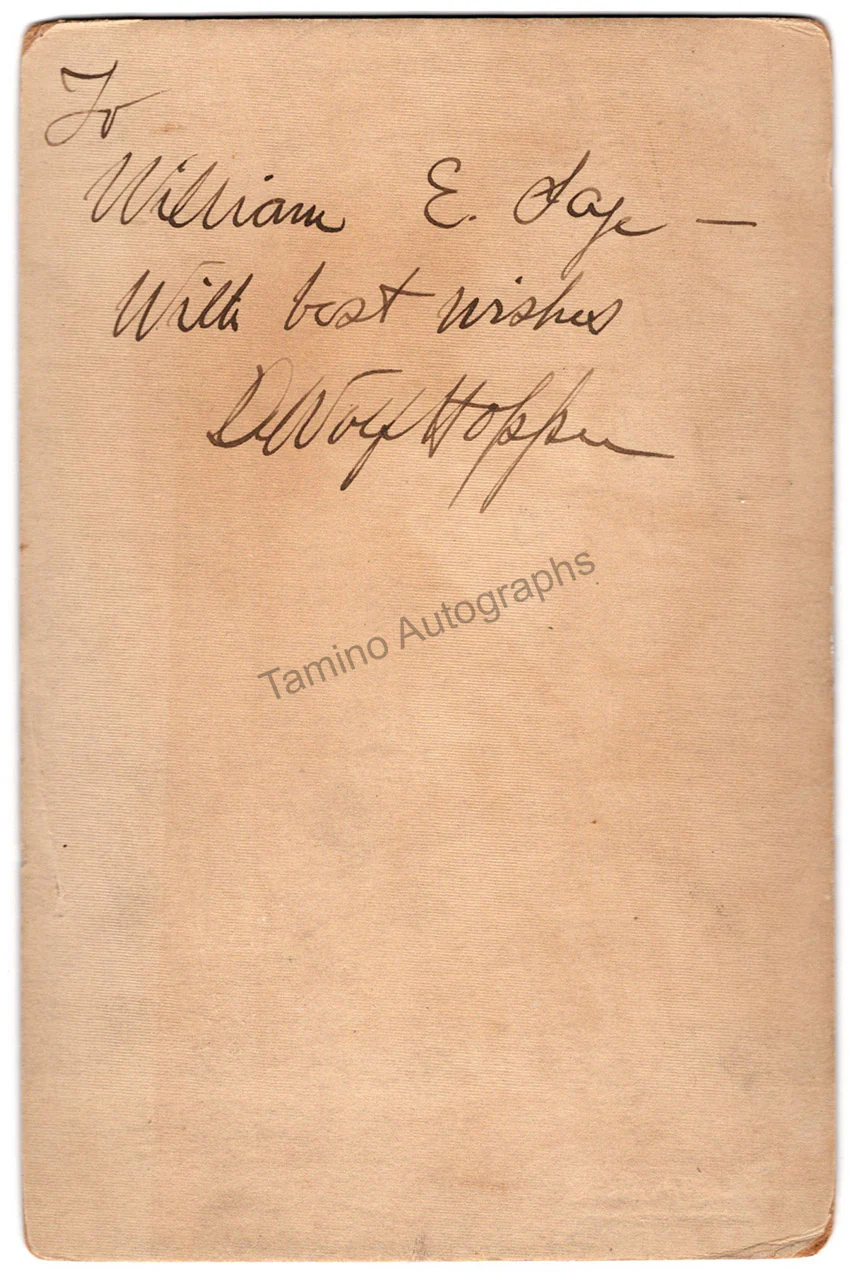 To
William E. Sage —
With best wishes
DeWolf Hopper
Tamino Autographs